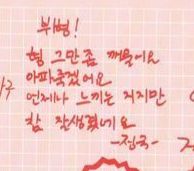 뷔형!
형 그만좀 깨물어요
아파죽겠어요
언제나 느끼는 거지만
참 잘생겼네요
-정국-